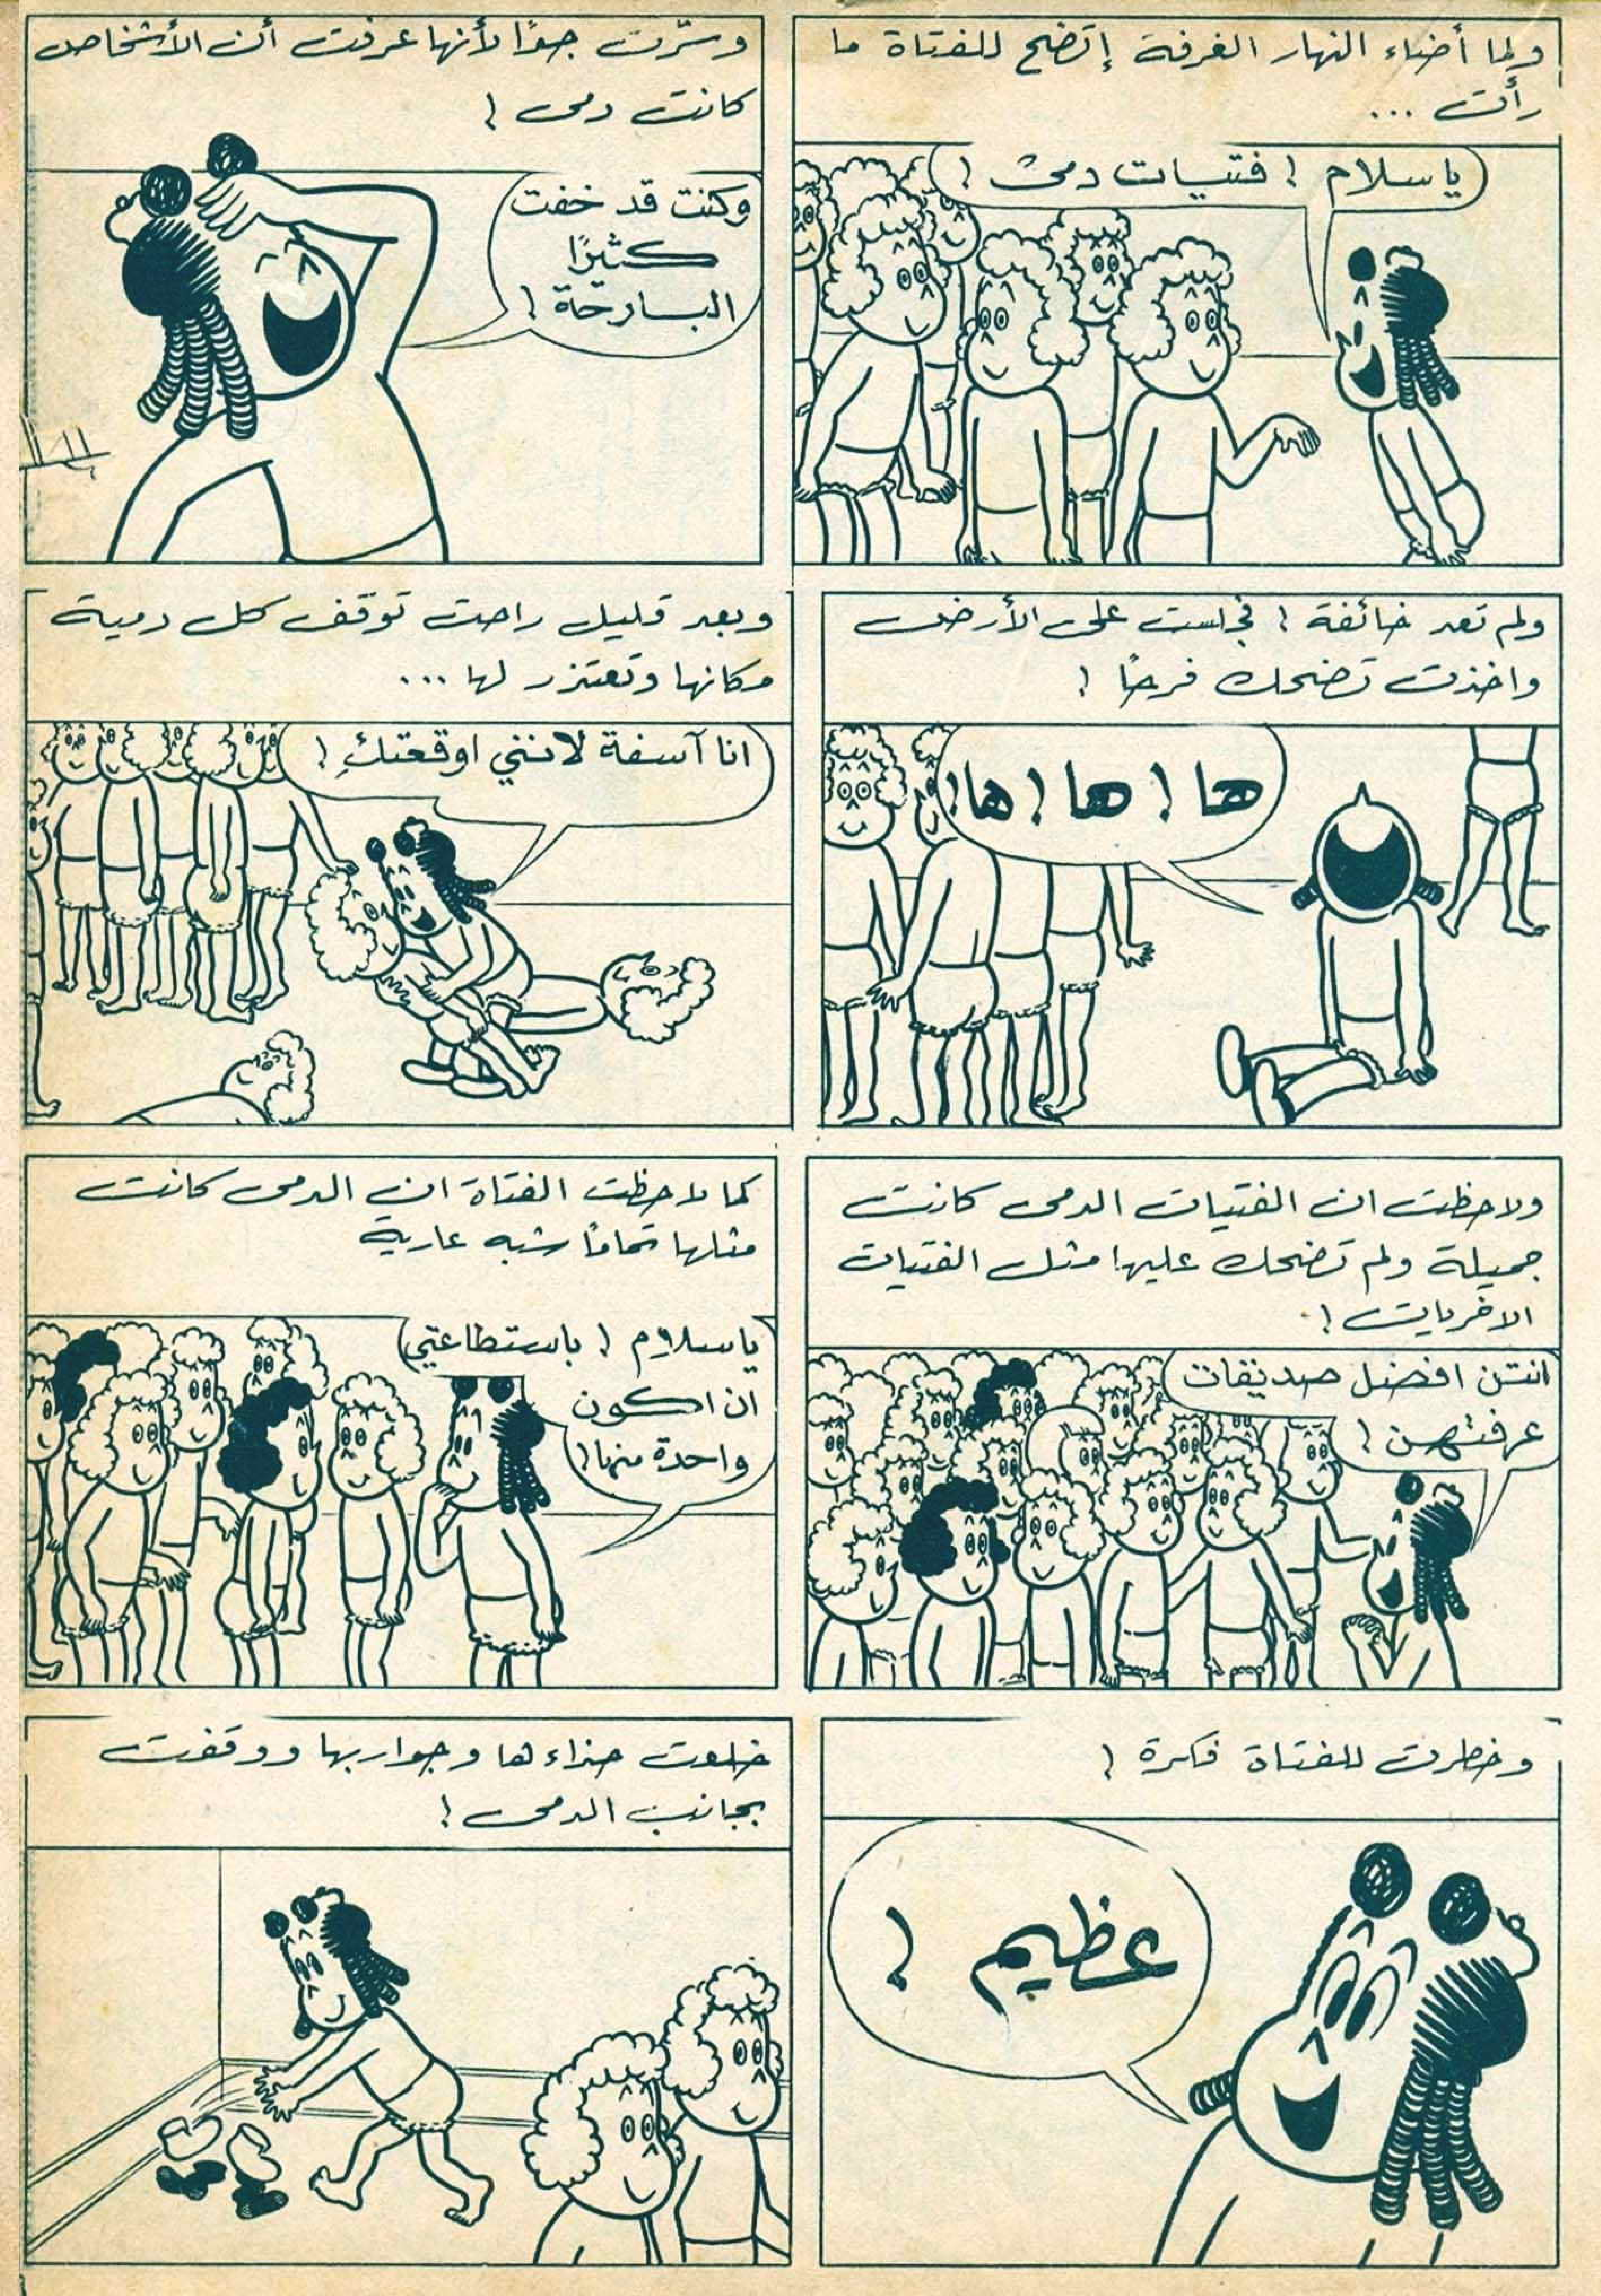 ولما أضاء النهار الغرفة إتضح للفتاة ما
رأت ...
ياسلام ! فتيات دمى !
وسرّت جدًا لأنها عرفت أن الأشخاص
كانت دمى !
وكنت قد خفت
كثيرًا
البارحة !
ولم تعد خائفة ! فجلست على الأرض
واخذت تضحك فرحًا !
ها ! ها ! ها !
وبعد قليل راحت توقّف كل دمية
مكانها وتعتذر لها ...
انا آسفة لانني اوقعتكِ !
ولاحظت ان الفتيات الدمى كانت
جميلة ولم تضحك عليها مثل الفتيات
الاخريات !
انتن افضل صديقات
عرفتهن !
كما لاحظت الفتاة ان الدمى كانت
مثلها تمامًا شبه عارية
ياسلام ! باستطاعتي
ان اكون
واحدة منها !
وخطرت للفتاة فكرة !
عظيم !
خلعت حذاءها وجواربها ووقفت
بجانب الدمى !